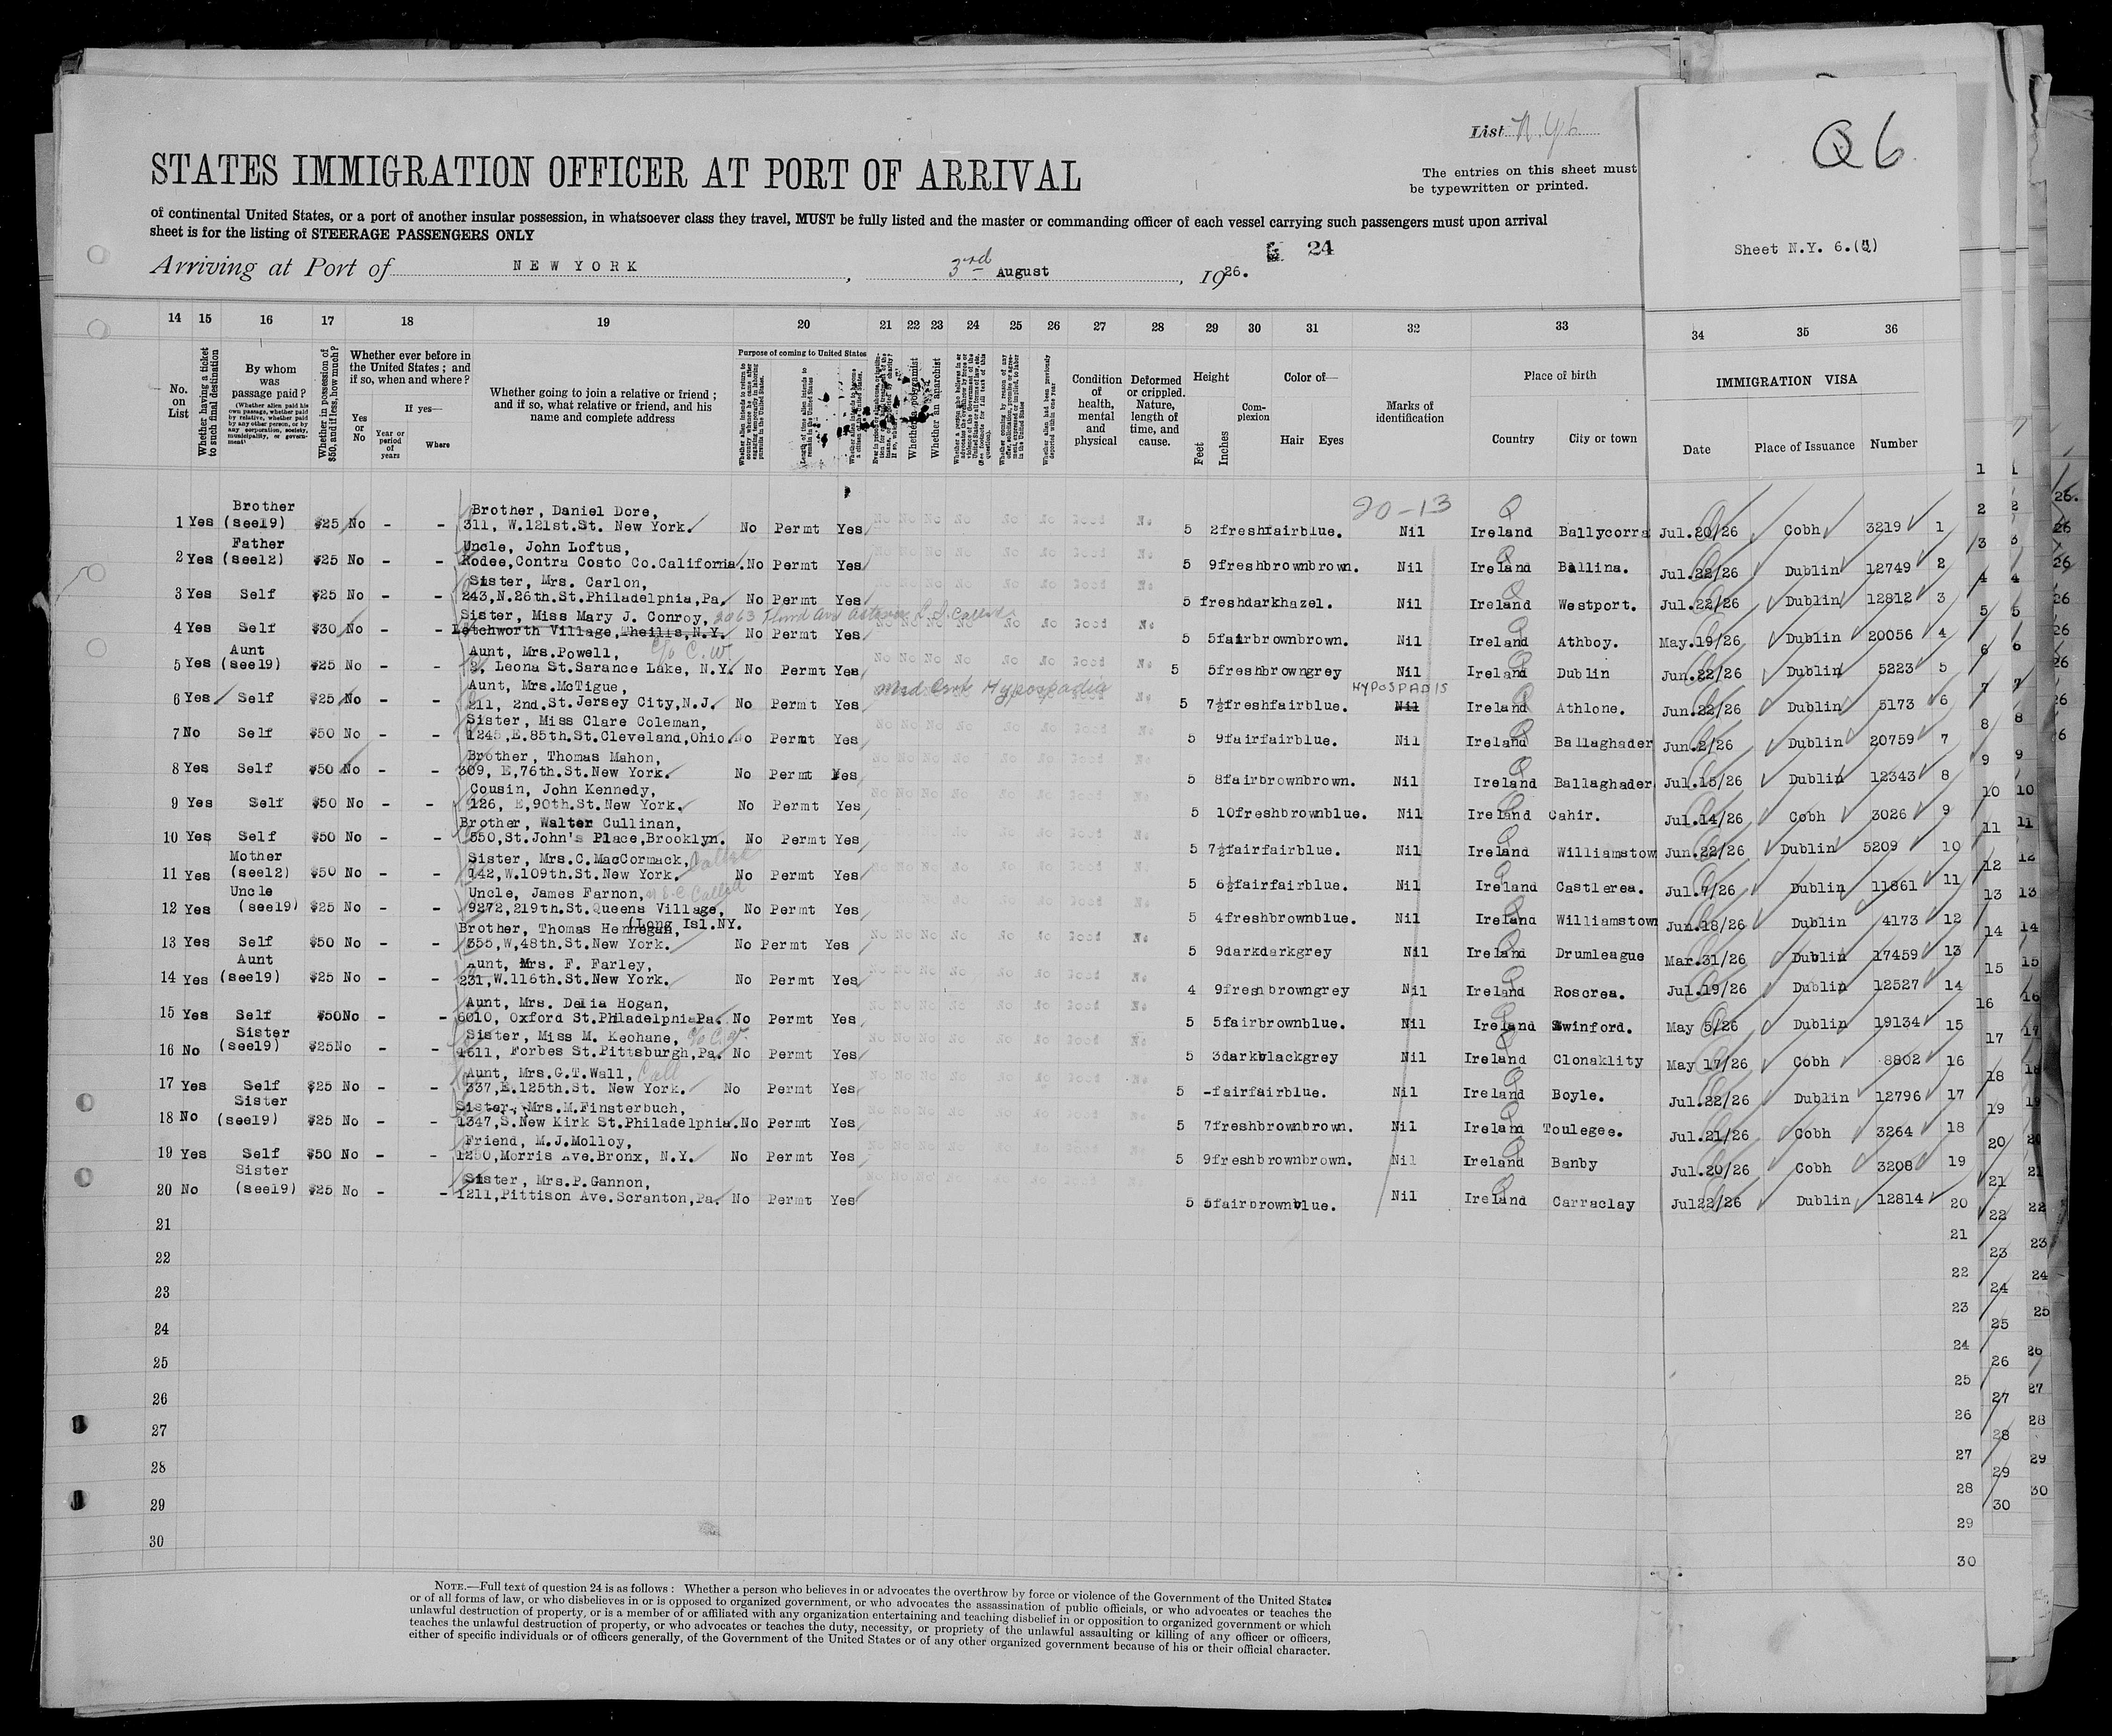 List N.Y.6
Q6
STATES IMMIGRATION OFFICER AT PORT OF ARRIVAL
The entries on this sheet must
be typewritten or printed.
of continental United States, or a port of another insular possession, in whatsoever class they travel, MUST be fully listed and the master or commanding officer of each vessel carrying such passengers must upon arrival
sheet is for the listing of STEERAGE PASSENGERS ONLY
24
Sheet N.Y. 6.
Arriving at Port of NEW YORK, 3rd August, 1926.
14 15 16 17 18 19 20 21 22 23 24 25 26 27 28 29 30 31 32 33 34 35 36
No. on List
Whether having a ticket to such final destination
By whom was passage paid?
(Whether alien paid his own passage, whether paid by relative, whether paid by any other person, or by any corporation, society, municipality, or government)
Whether in possession of $50, and if less, how much?
Whether ever before in the United States; and if so, when and where?
Yes or No
If yes—
Year or period of years
Where
Whether going to join a relative or friend; and if so, what relative or friend, and his name and complete address
Purpose of coming to United States
Whether alien intends to return to country whence he came after engaging temporarily in laboring pursuits in the United States.
Length of time alien intends to remain in the United States
Whether alien intends to become a citizen of the United States.
Whether a polygamist
Whether an anarchist
Whether alien had been previously deported within one year
Condition of health, mental and physical
Deformed or crippled. Nature, length of time, and cause.
Height
Feet Inches
Complexion
Color of—
Hair Eyes
Marks of identification
Place of birth
Country City or town
IMMIGRATION VISA
Date Place of Issuance Number
20-13
Brother Brother, Daniel Dore,
1 Yes (see19) $25 No - - 311, W.121st.St. New York. No Permt Yes No No No No No No Good No 5 2 fresh fair blue. Nil Ireland Ballycorra Jul.20/26 Cobh 3219 1
Father Uncle, John Loftus,
2 Yes (see12) $25 No - - Rodee,Contra Costo Co.California. No Permt Yes No No No No No No Good No 5 9 fresh brown brown. Nil Ireland Ballina. Jul.22/26 Dublin 12749 2
Sister, Mrs. Carlon,
3 Yes Self $25 No - - 243,N.26th.St.Philadelphia,Pa. No Permt Yes No No No No No No Good No 5 fresh dark hazel. Nil Ireland Westport. Jul.22/26 Dublin 12812 3
Sister, Miss Mary J. Conroy,
4 Yes Self $30 No - - Letchworth Village,Theills,N.Y. No Permt Yes No No No No No No Good No 5 5 fair brown brown. Nil Ireland Athboy. May.19/26 Dublin 20056 4
Aunt Aunt, Mrs.Powell, c/o C.W.
5 Yes (see19) $25 No - - 3, Leona St.Sarance Lake, N.Y. No Permt Yes No No No No No No Good No 5 5 fresh brown grey Nil Ireland Dublin Jun.22/26 Dublin 5223 5
Aunt, Mrs.McTigue, Med Cert Hypospadia HYPOSPADIS
6 Yes Self $25 No - - 211, 2nd.St.Jersey City,N.J. No Permt Yes 5 7½ fresh fair blue. Nil Ireland Athlone. Jun.22/26 Dublin 5173 6
Sister, Miss Clare Coleman,
7 No Self $50 No - - 1245,E.85th.St.Cleveland,Ohio. No Permt Yes No No No No No No Good No 5 9 fair fair blue. Nil Ireland Ballaghader Jun.2/26 Dublin 20759 7
Brother, Thomas Mahon,
8 Yes Self $50 No - - 309, E,76th.St.New York. No Permt Yes No No No No No No Good No 5 8 fair brown brown. Nil Ireland Ballaghader Jul.15/26 Dublin 12343 8
Cousin, John Kennedy,
9 Yes Self $50 No - - 126, E,90th.St.New York. No Permt Yes No No No No No No Good No 5 10 fresh brown blue. Nil Ireland Cahir. Jul.14/26 Cobh 3026 9
Brother, Walter Cullinan,
10 Yes Self $50 No - - 550,St.John's Place,Brooklyn. No Permt Yes No No No No Good No 5 7½ fair fair blue. Nil Ireland Williamstow Jun.22/26 Dublin 5209 10
Mother Sister, Mrs.C.MacCormack, Called
11 Yes (see12) $50 No - - 142,W.109th.St.New York. No Permt Yes No No No No No No Good No 5 6½ fair fair blue. Nil Ireland Castlerea. Jul.7/26 Dublin 11861 11
Uncle Uncle, James Farnon, Called
12 Yes (see19) $25 No - - 9272,219th.St.Queens Village, No Permt Yes No No No No No No Good No 5 4 fresh brown blue. Nil Ireland Williamstown Jun.18/26 Dublin 4173 12
(Long Isl.NY.
Brother, Thomas Hennegan,
13 Yes Self $50 No - - 355,W,48th.St.New York. No Permt Yes No No No No No No Good No 5 9 dark dark grey Nil Ireland Drumleague Mar.31/26 Dublin 17459 13
Aunt Aunt, Mrs. F. Farley,
14 Yes (see19) $25 No - - 231,W.116th.St.New York. No Permt Yes No No No No No No Good No 4 9 fresh brown grey Nil Ireland Roscrea. Jul.19/26 Dublin 12527 14
Aunt, Mrs. Delia Hogan,
15 Yes Self $50 No - - 6010, Oxford St.Philadelphia Pa. No Permt Yes No No No No No No Good No 5 5 fair brown blue. Nil Ireland Swinford. May 5/26 Dublin 19134 15
Sister Sister, Miss M. Keohane, c/o C.W.
16 No (see19) $25 No - - 1611, Forbes St.Pittsburgh,Pa. No Permt Yes No No No No No No Good No 5 3 dark black grey Nil Ireland Clonaklity May 17/26 Cobh 8802 16
Aunt, Mrs.G.T.Wall, Call
17 Yes Self $25 No - - 337,E.125th.St. New York. No Permt Yes No No No No No No Good No 5 - fair fair blue. Nil Ireland Boyle. Jul.22/26 Dublin 12796 17
Sister Sister, Mrs.M.Finsterbuch,
18 No (see19) $25 No - - 1347,S.New Kirk St.Philadelphia. No Permt Yes No No No No No No Good No 5 7 fresh brown brown. Nil Ireland Toulegee. Jul.21/26 Cobh 3264 18
Friend, M.J.Molloy,
19 Yes Self $50 No - - 1250,Morris Ave.Bronx, N.Y. No Permt Yes No No No No No No Good No 5 9 fresh brown brown. Nil Ireland Banby Jul.20/26 Cobh 3208 19
Sister Sister, Mrs.P.Gannon,
20 No (see19) $25 No - - 1211,Pittison Ave.Scranton,Pa. No Permt Yes No No No No No No Good No 5 5 fair brown blue. Nil Ireland Carraclay Jul22/26 Dublin 12814 20
21 21
22 22
23 23
24 24
25 25
26 26
27 27
28 28
29 29
30 30
NOTE.—Full text of question 24 is as follows: Whether a person who believes in or advocates the overthrow by force or violence of the Government of the United States
or of all forms of law, or who disbelieves in or is opposed to organized government, or who advocates the assassination of public officials, or who advocates or teaches the
unlawful destruction of property, or is a member of or affiliated with any organization entertaining and teaching disbelief in or opposition to organized government or which
teaches the unlawful destruction of property, or who advocates or teaches the duty, necessity, or propriety of the unlawful assaulting or killing of any officer or officers,
either of specific individuals or of officers generally, of the Government of the United States or of any other organized government because of his or their official character.